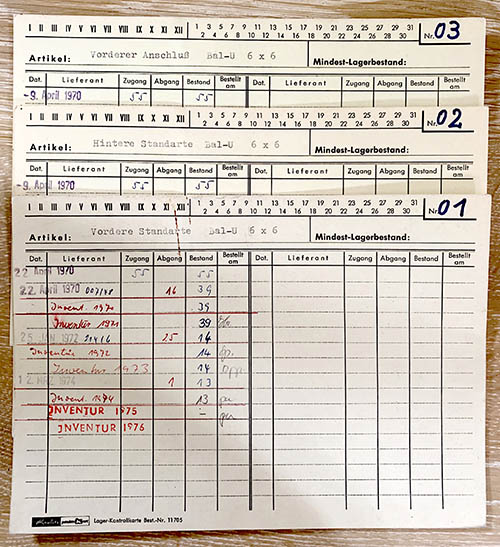 I II III IV V VI VII VIII IX X XI XII 1 3 5 7 9 11 13 15 17 19 21 23 25 27 29 31
2 4 6 8 10 12 14 16 18 20 22 24 26 28 30 Nr. 03
Artikel: Vorderer Anschluß Bal-U 6 x 6 Mindest-Lagerbestand:
Dat. Lieferant Zugang Abgang Bestand Bestellt am Dat. Lieferant Zugang Abgang Bestand Bestellt am
-9. April 1970 55 55
I II III IV V VI VII VIII IX X XI XII 1 3 5 7 9 11 13 15 17 19 21 23 25 27 29 31
2 4 6 8 10 12 14 16 18 20 22 24 26 28 30 Nr. 02
Artikel: Hintere Standarte Bal-U 6 x 6 Mindest-Lagerbestand:
Dat. Lieferant Zugang Abgang Bestand Bestellt am Dat. Lieferant Zugang Abgang Bestand Bestellt am
-9. April 1970 55 55
I II III IV V VI VII VIII IX X XI XII 1 3 5 7 9 11 13 15 17 19 21 23 25 27 29 31
2 4 6 8 10 12 14 16 18 20 22 24 26 28 30 Nr. 01
Artikel: Vordere Standarte Bal-U 6 x 6 Mindest-Lagerbestand:
Dat. Lieferant Zugang Abgang Bestand Bestellt am Dat. Lieferant Zugang Abgang Bestand Bestellt am
22. April 1970 55 55
22. April 1970 16 39
Invent. 1970 39
Inventur 1971 39
25. JAN. 1972 25 14
Inventur 1972 14
Inventur 1973 14
12. MRZ. 1974 1 13
Invent. 1974 13
INVENTUR 1975 –
INVENTUR 1976
Lager-Kontrollkarte Best.-Nr. 11705